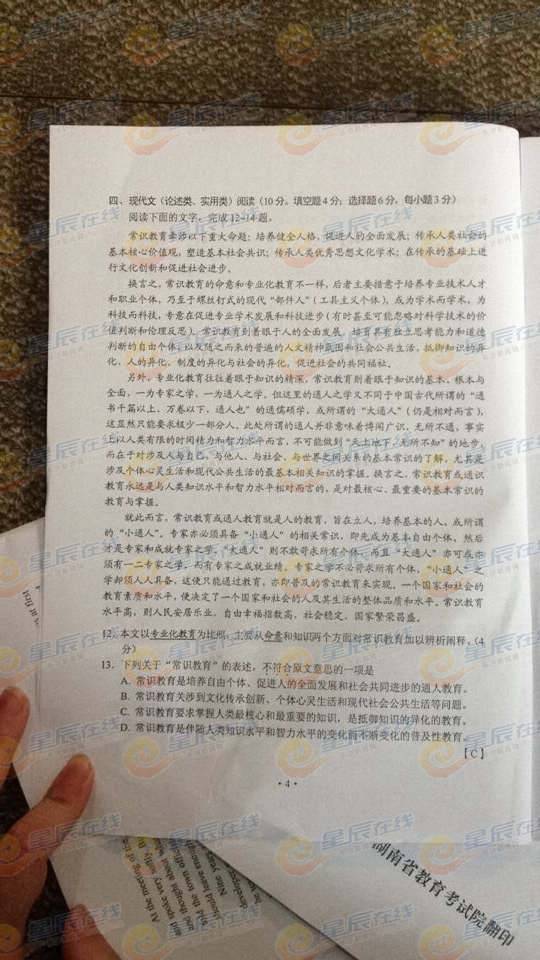 四、现代文（论述类、实用类）阅读（10分。填空题4分；选择题6分，每小题3分）
阅读下面的文字，完成12~14题。
常识教育牵涉以下重大命题：培养健全人格，促进人的全面发展；传承人类社会的
基本核心价值观，塑造基本社会共识；传承人类优秀思想文化学术；在传承的基础上进
行文化创新和促进社会进步。
换言之，常识教育的命意和专业化教育不一样，后者主要措意于培养专业技术人才
和职业个体，乃至于螺丝钉式的现代“部件人”（工具主义个体），成为学术而学术，为
科技而科技，专意在促进专业学术发展和科技进步（有时甚至可能忽略对科学技术的价
值判断和伦理反思）。常识教育则着眼于人的全面发展，培育具有独立思考能力和道德
判断的自由个体，以及随之而来的普遍的人文精神氛围和社会公共生活，抵御知识的异
化、人的异化、制度的异化与社会的异化，促进社会的共同福祉。
另外，专业化教育往往着眼于知识的精深，常识教育则着眼于知识的基本、根本与
全面，一为专家之学，一为通人之学。但这里的通人之学又不同于中国古代所谓的“通
书千篇以上，万卷以下，通人也”的通儒硕学，或所谓的“大通人”（仍是相对而言），
这显然只能要求极少一部分人。此处所谓的通人并非意味着博闻广识，无所不通，事实
上以人类有限的时间精力和智力水平而言，不可能做到“天上地下，无所不知”的地步，
而在于对涉及人与自己、与他人、与社会、与世界之间关系的基本常识的了解，尤其是
涉及个体心灵生活和现代公共生活的最基本相关知识的掌握。换言之，常识教育或通识
教育永远是与人类知识水平和智力水平相对而言的，是对最核心、最重要的基本常识的
教育与掌握。
就此而言，常识教育或通人教育就是人的教育，旨在立人，培养基本的人，或所谓
的“小通人”，专家亦必须具备“小通人”的相关常识，即先成为基本自由个体，然后
才是专家和成就专家之学，“大通人”则不敢苛求所有个体，而且“大通人”亦可或亦
须有一二专家之学。而有专家之成就业精，专家之学不必苛求所有个体，“小通人”之
学却须人人具备，这便只能通过教育，亦即普及的常识教育来实现。一个国家和社会的
教育素质和水平，便决定了一个国家和社会的人及其生活的整体品质和水平。常识教育
水平高，则人民安居乐业，自由幸福指数高，社会稳定，国家繁荣昌盛。
12. 本文以专业化教育为比照，主要从命意和知识两个方面对常识教育加以辨析阐释。（4
分）
13. 下列关于“常识教育”的表述，不符合原文意思的一项是
A. 常识教育是培养自由个体、促进人的全面发展和社会共同进步的通人教育。
B. 常识教育关涉到文化传承创新、个体心灵生活和现代社会公共生活等问题。
C. 常识教育要求掌握人类最核心和最重要的知识，是抵御知识的异化的教育。
D. 常识教育是伴随人类知识水平和智力水平的变化而不断变化的普及性教育。
【C】
·4·
湖南省教育考试院翻印
星辰在线